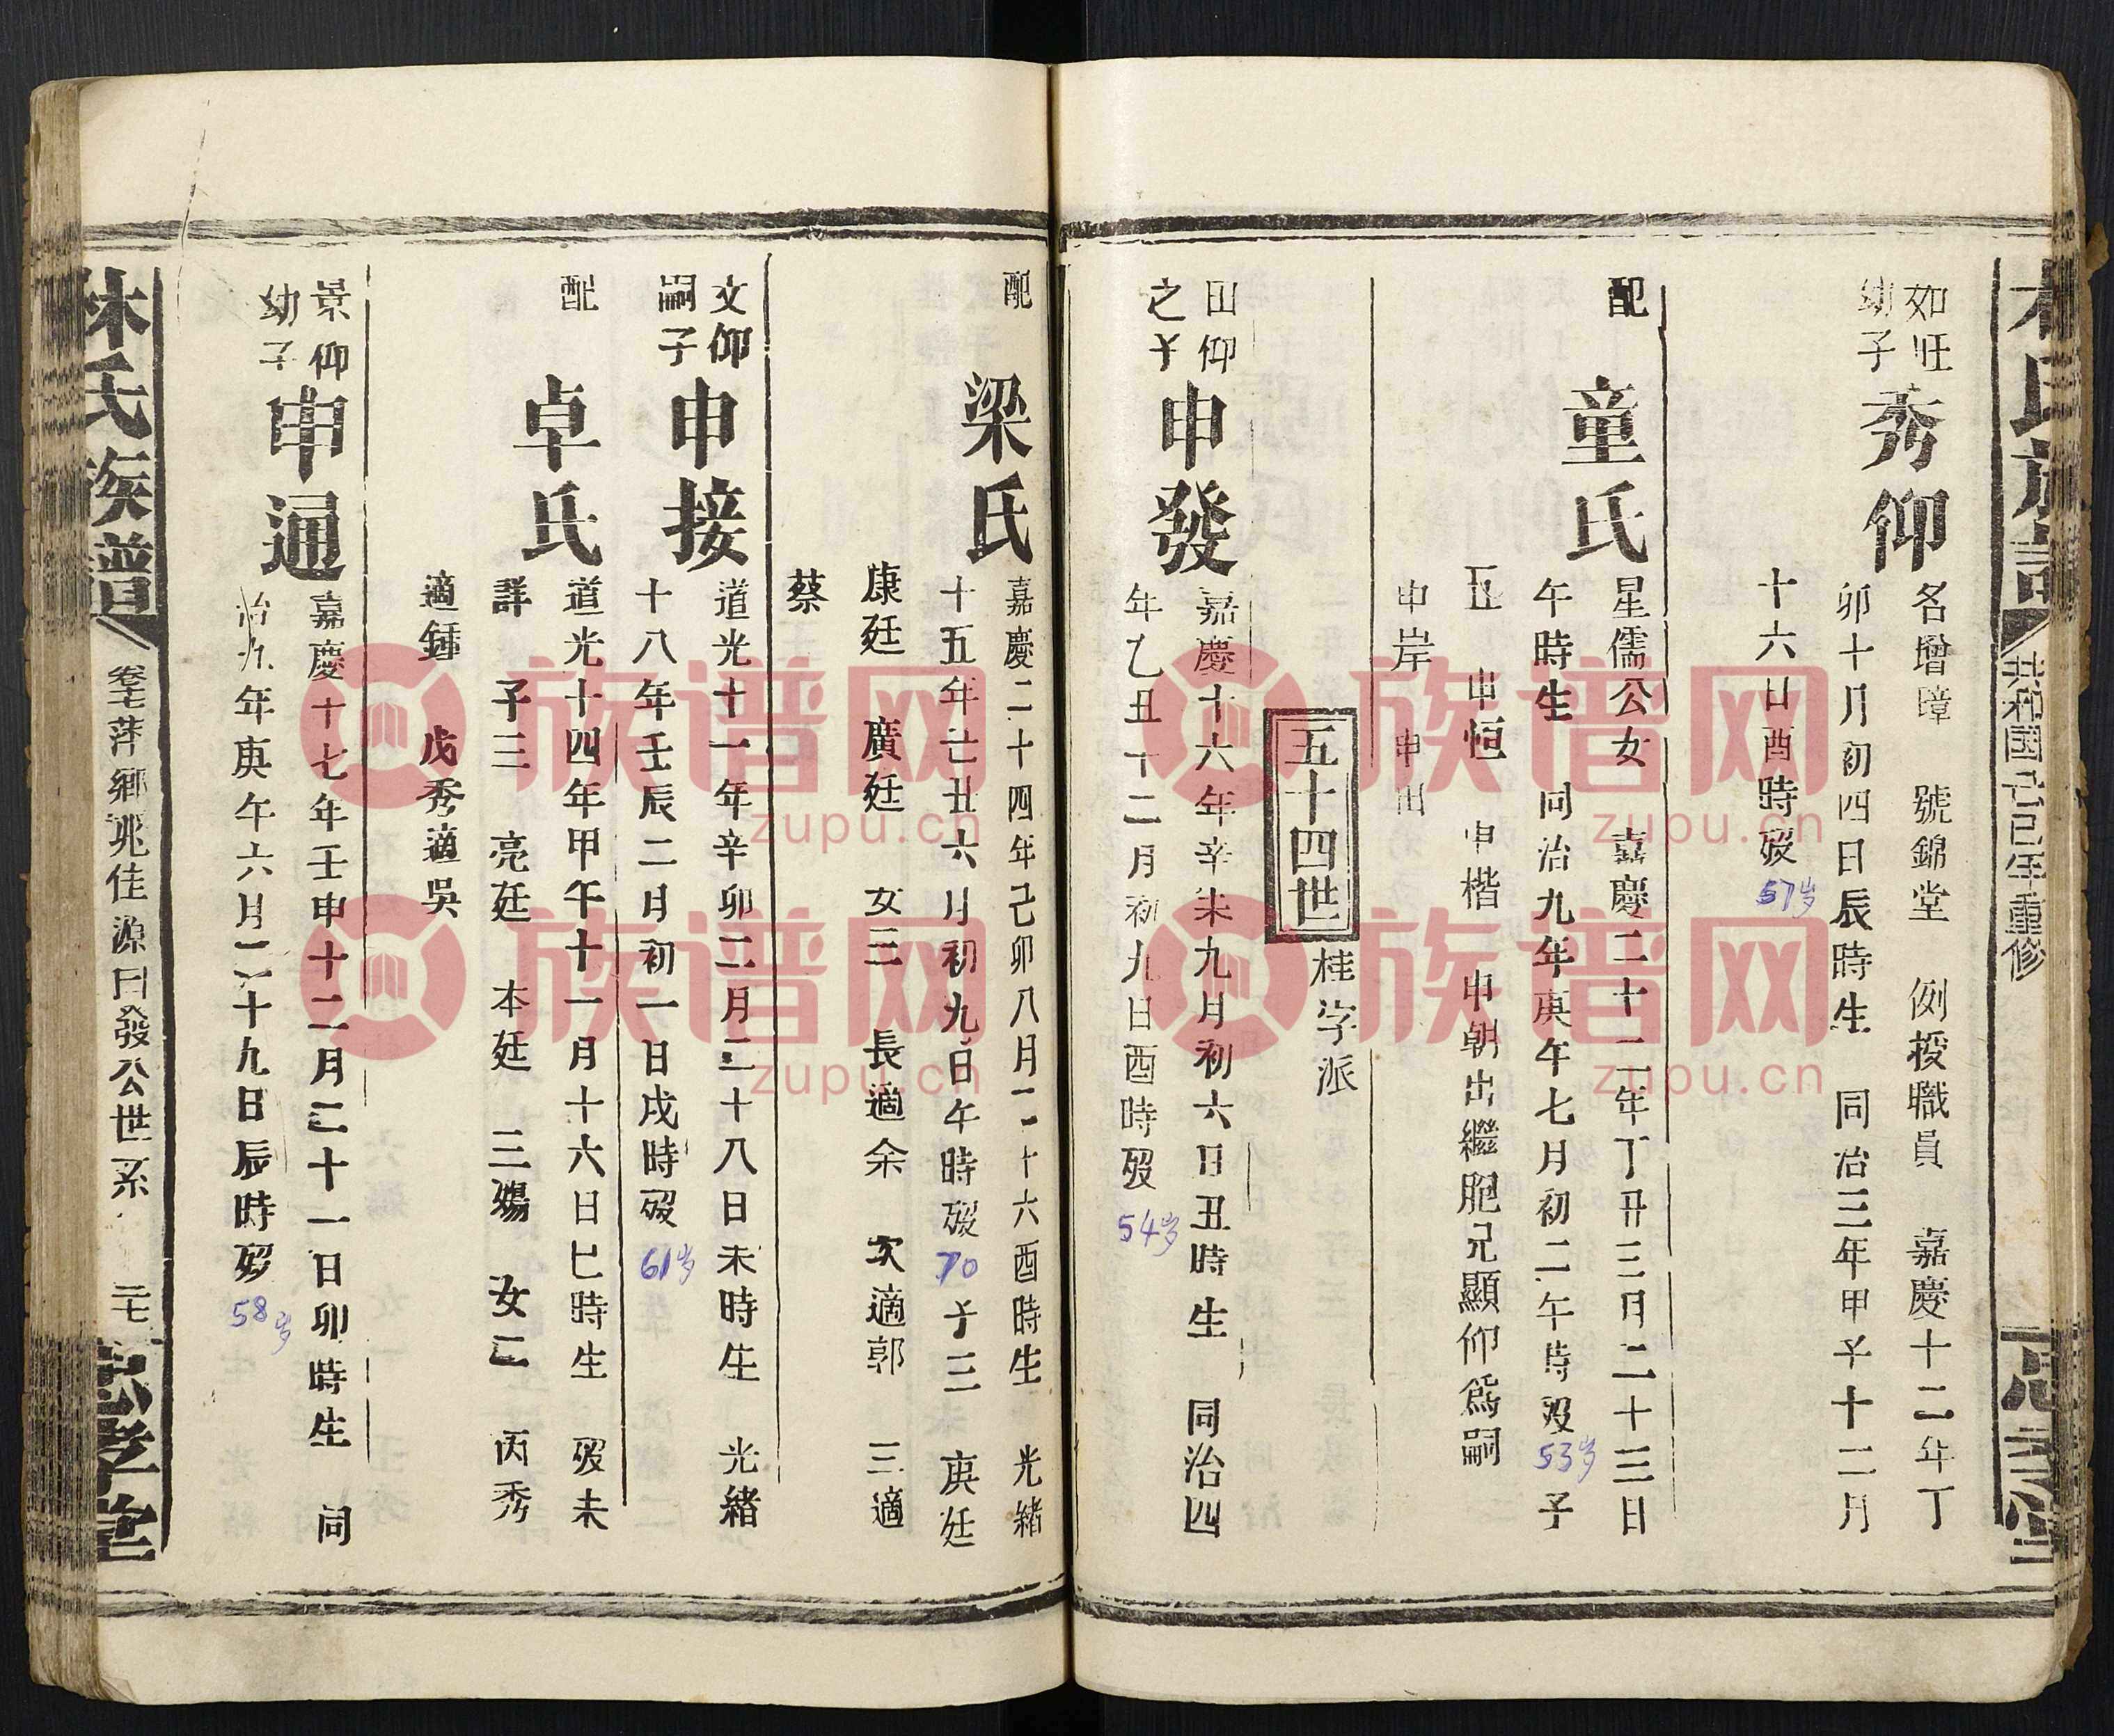 林氏族譜
共和國己巳年重修
忠孝堂
如旺
幼子
秀仰
名增暲 號錦堂 例授職員 嘉慶十二年丁
卯十月初四日辰時生 同治三年甲子十二月
十六日酉時歿 57岁
配
童氏
星儒公女 嘉慶二十二年丁丑三月二十三日
午時生 同治九年庚午七月初二午時歿 53岁 子
五 申恒 申楷 申朝出繼胞兄顯仰為嗣
申岸 申出
五十四世
桂字派
田仰
之子
申發
嘉慶十六年辛未九月初六日丑時生 同治四
年乙丑十二月初九日酉時歿 54岁
配
梁氏
嘉慶二十四年己卯八月二十六酉時生 光緒
十五年己丑六月初九日午時歿 70 子三 庚廷
康廷 廣廷 女三 長適余 次適郭 三適
蔡
文仰
嗣子
申接
道光十一年辛卯二月二十八日未時生 光緒
十八年壬辰二月初一日戌時歿 61岁
配
卓氏
道光十四年甲午十一月十六日巳時生 歿未
詳 子三 亮廷 本廷 三殤 女二 丙秀
適鍾 戊秀適吳
景仰
幼子
申通
嘉慶十七年壬申十二月二十一日卯時生 同
治九年庚午六月二十九日辰時歿 58岁
林氏族譜
卷七萍鄉兆佳源日發公世系
二七
忠孝堂
族谱网
zupu.cn
族谱网
zupu.cn
族谱网
zupu.cn
族谱网
zupu.cn